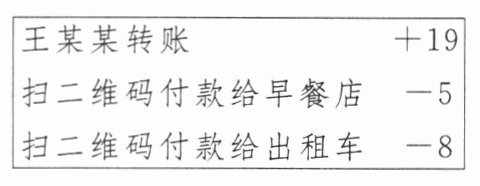 王某某转账 +19
扫二维码付款给早餐店 -5
扫二维码付款给出租车 -8